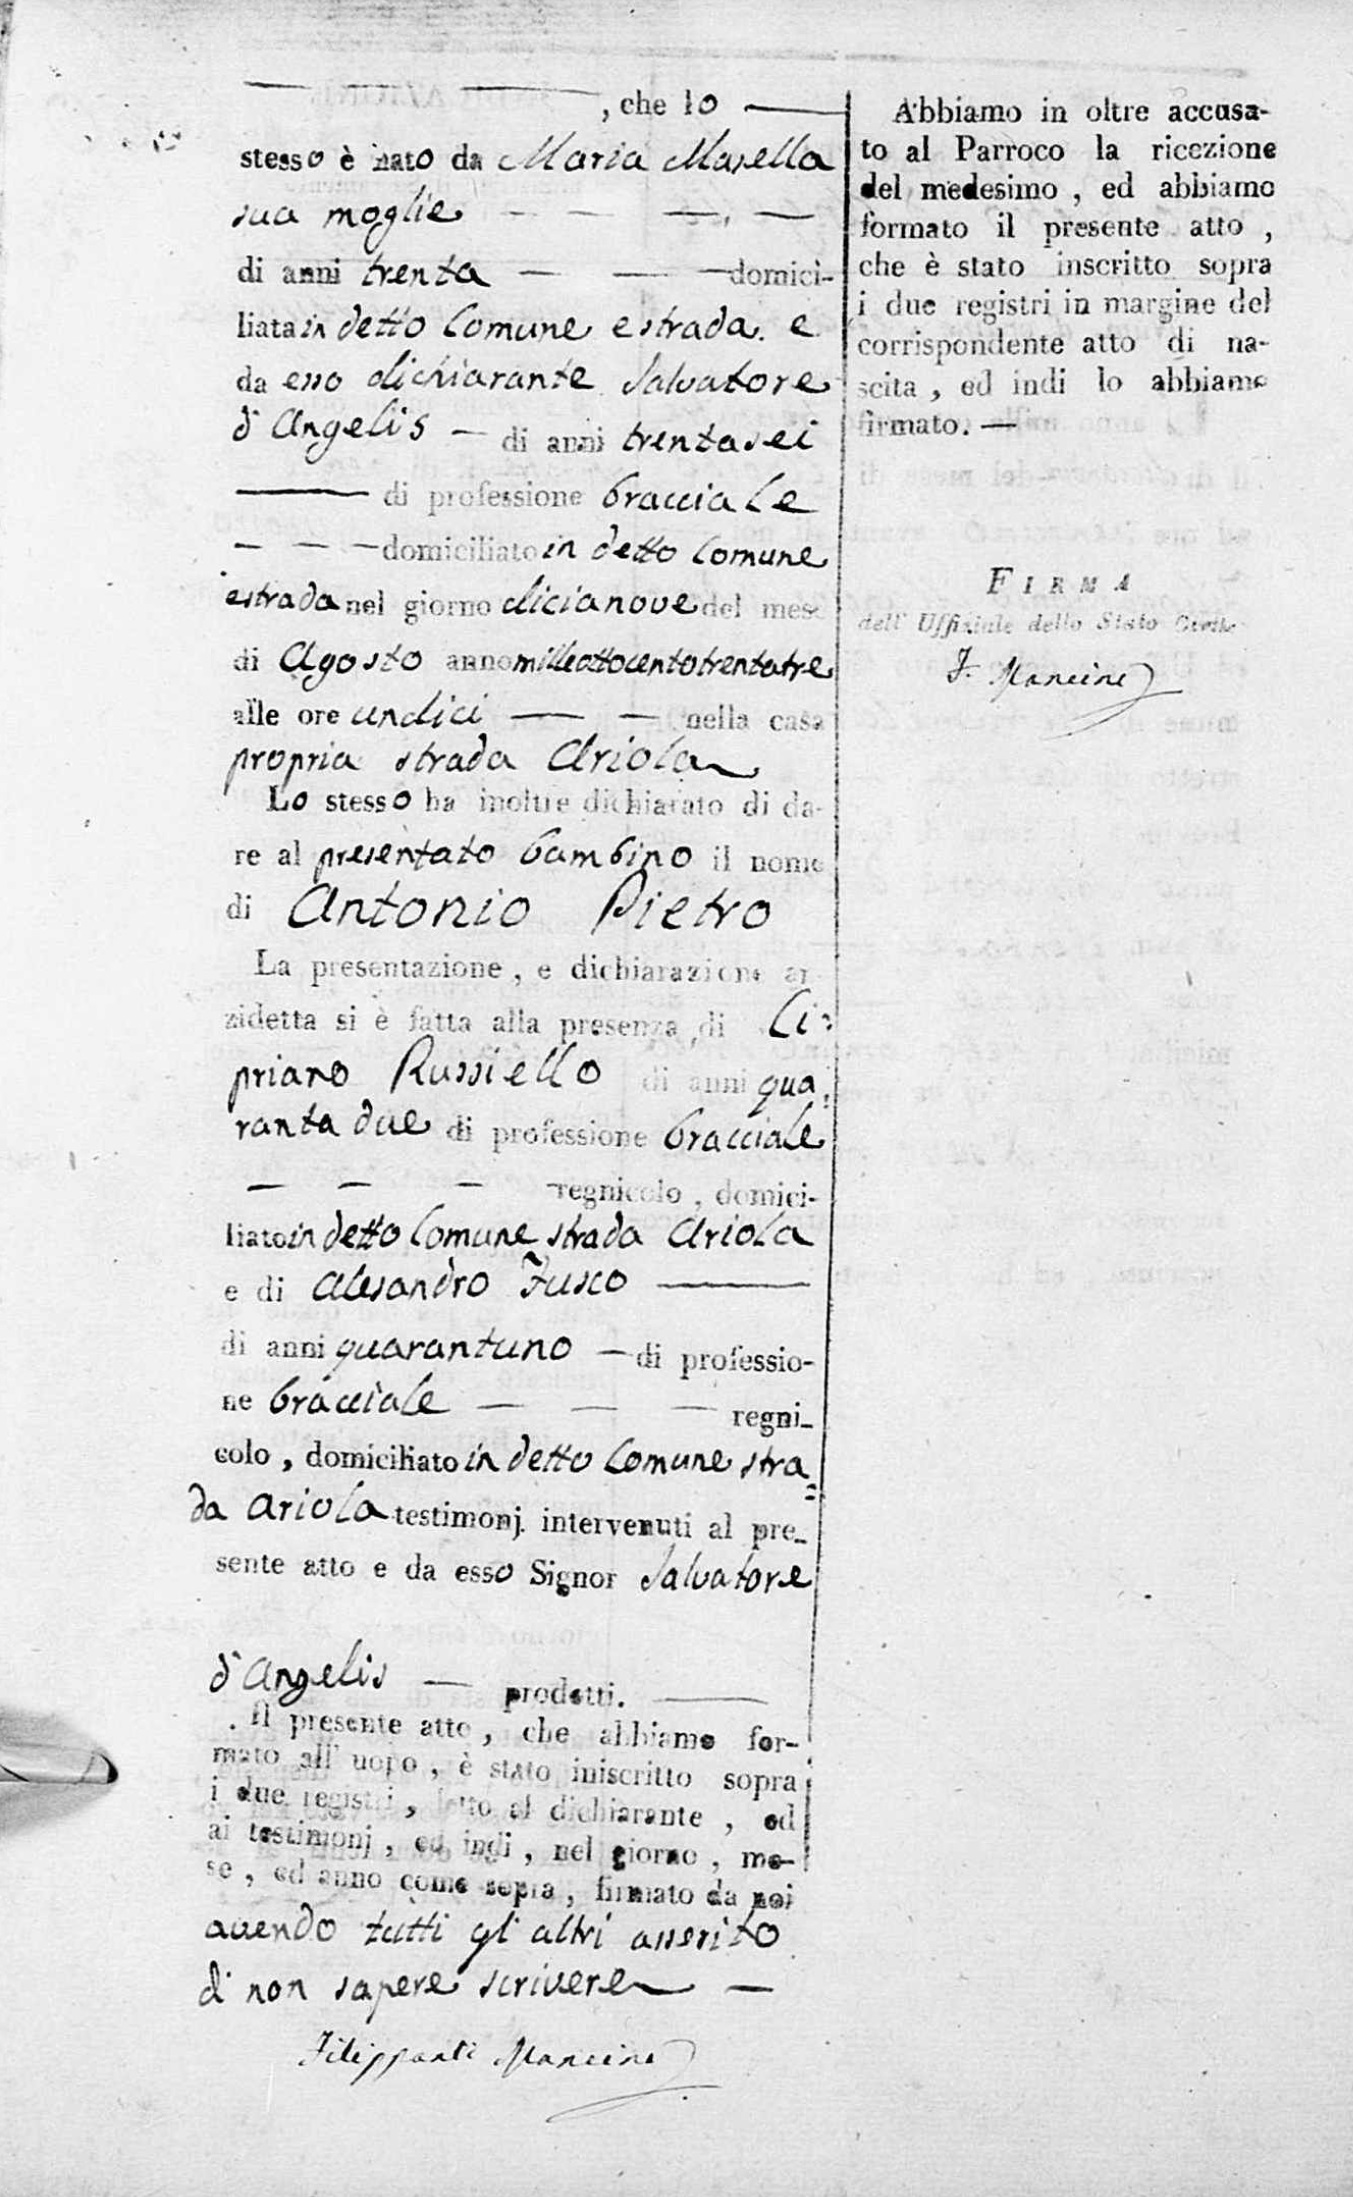 , che lo
stesso è nato da Maria Masella
sua moglie
di anni trenta domici-
liata in detto Comune e strada. e
da esso dichiarante Salvatore
d'Angelis di anni trentasei
di professione bracciale
domiciliato in detto Comune
e strada nel giorno dicianove del mese
di Agosto anno milleottocentotrentatre
alle ore undici nella casa
propria strada Ariola
Lo stesso ha inoltre dichiarato di da-
re al presentato bambino il nome
di Antonio Pietro
La presentazione, e dichiarazione an-
zidetta si è fatta alla presenza di Ci=
priano Russiello di anni qua=
ranta due di professione bracciale
regnicolo, domici-
liato in detto Comune strada Ariola
e di Alesandro Fusco
di anni quarantuno di professio-
ne bracciale regni-
colo, domiciliato in detto Comune stra=
da Ariola testimonj intervenuti al pre-
sente atto e da esso Signor Salvatore
d'Angelis prodotti.
Il presente atto, che abbiamo for-
mato all' uopo, è stato iniscritto sopra
i due registri, letto al dichiarante, ed
ai testimonj, ed indi, nel giorno, me-
se, ed anno come sopra, firmato da noi
avendo tutti gl'altri asserito
di non sapere scrivere
Mancini
Abbiamo in oltre accusa-
to al Parroco la ricezione
del medesimo, ed abbiamo
formato il presente atto,
che è stato inscritto sopra
i due registri in margine del
corrispondente atto di na-
scita, ed indi lo abbiamo
firmato.
FIRMA
dell' Uffiziale dello Stato Civile
F. Mancini